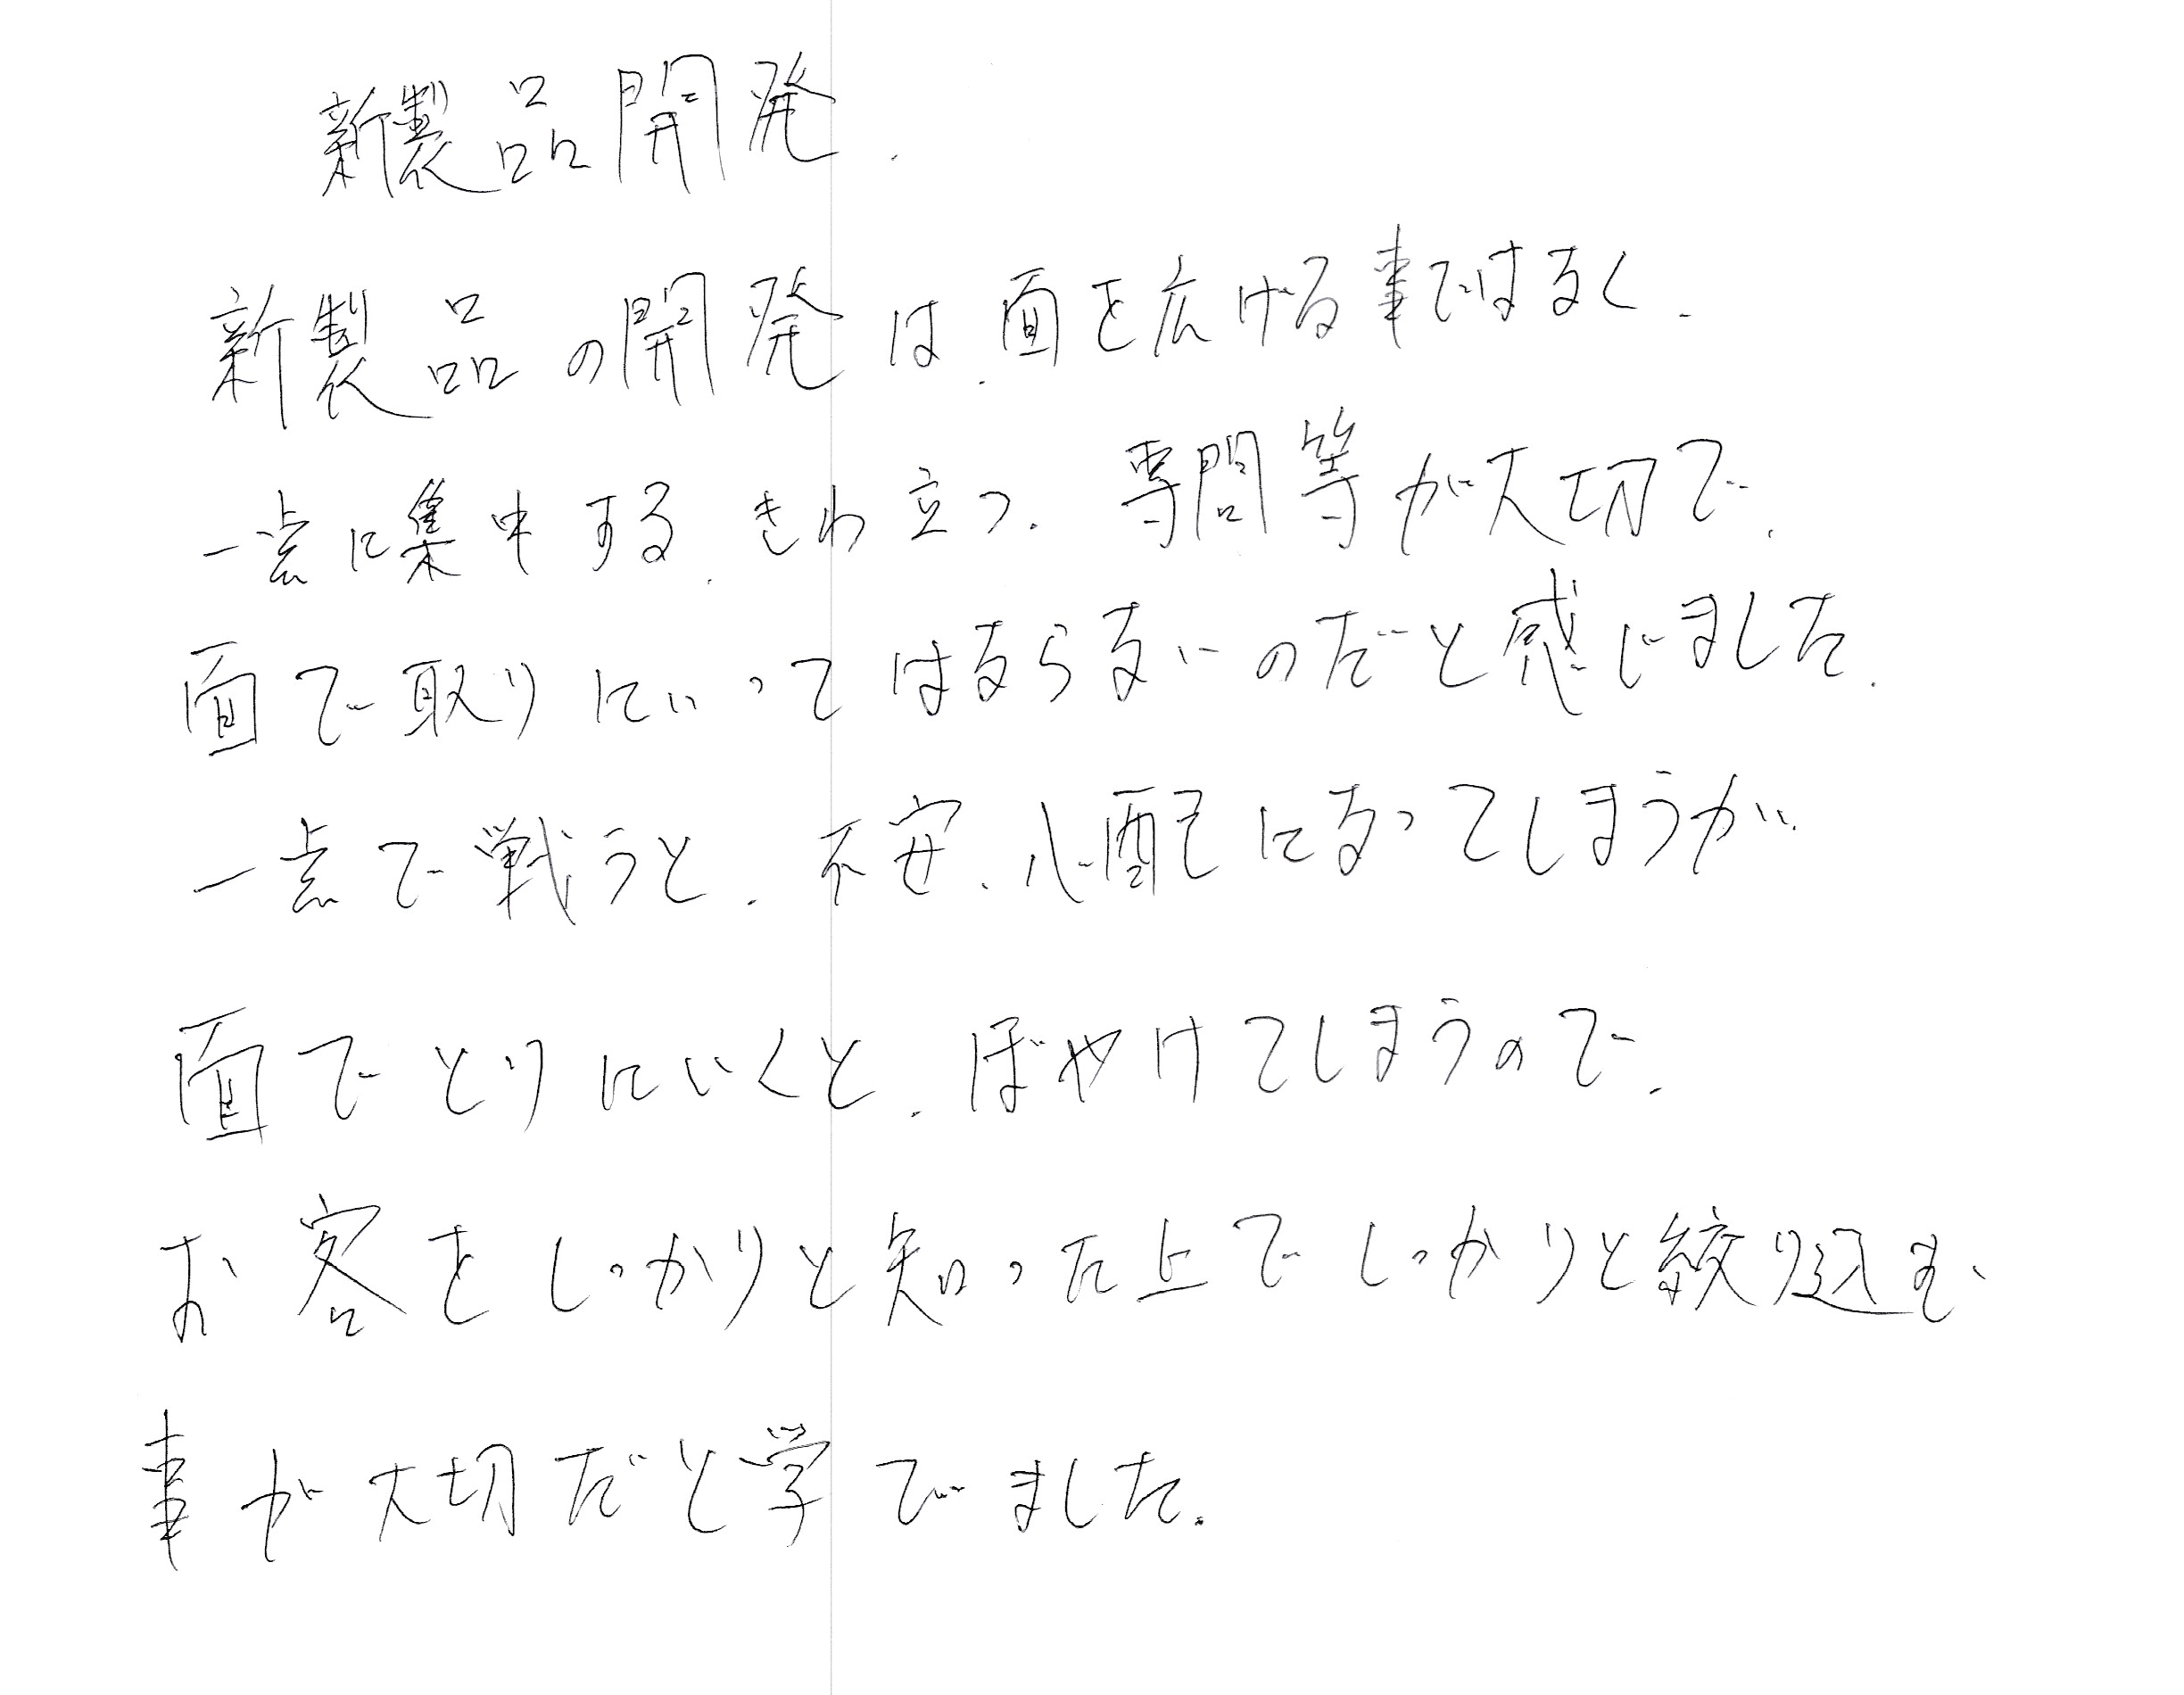 新製品開発.
新製品の開発は、面を広げる事ではなく、
一点に集中する、きわ立つ、専問等が大切で、
面で取りにいってはならないのだと感じました。
一点で戦うと、不安、心配になってしまうが、
面でとりにいくと、ぼやけてしまうので、
お客をしっかりと知った上でしっかりと絞り込む
事が大切だと学でました。